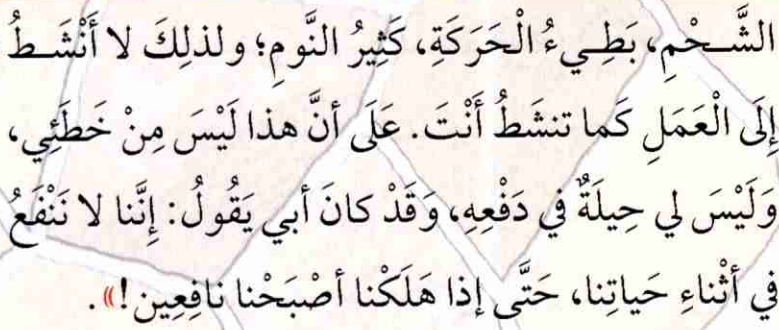 الشَّحْمِ، بَطِيءُ الْحَرَكَةِ، كَثِيرُ النَّومِ؛ ولذلِكَ لا أَنْشَطُ
إِلَى الْعَمَلِ كَما تنشَطُ أَنْتَ. عَلَى أنَّ هذا لَيْسَ مِنْ خَطَئِي،
وَلَيْسَ لي حِيلَةٌ في دَفْعِهِ، وَقَدْ كانَ أبي يَقُولُ: إِنَّنا لا نَنْفَعُ
في أثْناءِ حَياتِنا، حَتَّى إذا هَلَكْنا أصْبَحْنا نافِعِين!».